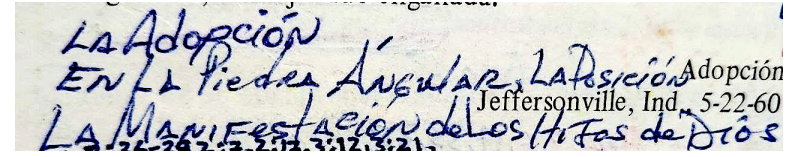 La Adopción
En La Piedra Angular, La Posición Adopción
Jeffersonville, Ind., 5-22-60
La Manifestación de Los Hijos de Dios